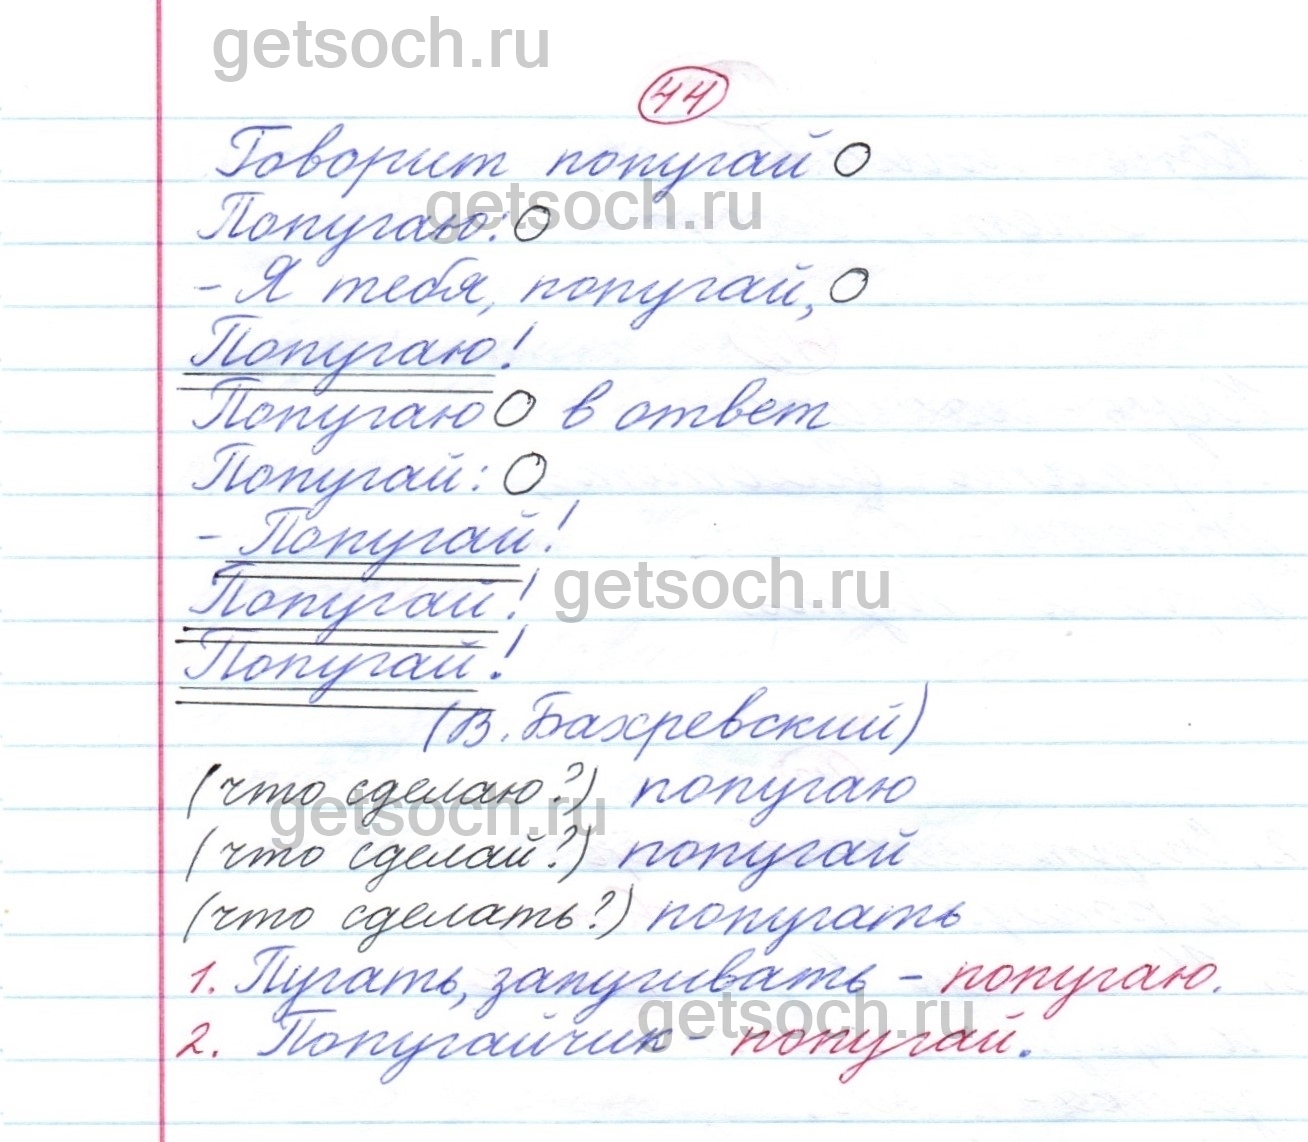 getsoch.ru
44
Говорит попугай
getsoch.ru
Попугаю:
- Я тебя, попугай,
Попугаю!
Попугаю в ответ
Попугай:
- Попугай!
getsoch.ru
Попугай!
Попугай!
(В. Бахревский)
(что сделаю?) попугаю
getsoch.ru
(что сделай?) попугай
(что сделать?) попугать
1. Пугать, запугивать - попугаю.
getsoch.ru
2. Попугайчик - попугай.